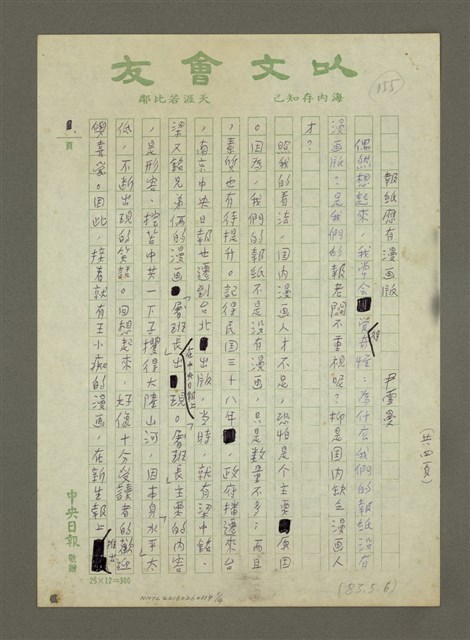 以文會友
海內存知己
天涯若比鄰
155
報紙應有漫画版
尹雪曼
(共四頁)
偶然想起來,我常会覚得奇怪:為什庅我們的報紙沒有
漫画版?是我們的報老闆不重視呢?抑是国内缺乏漫画人
才?
照我的看法,国内漫画人才不足,恐怕是个主要原因
。因為,我們的報紙不是沒有漫画,只是数量不多;而且
,素質也有待提升。記得民国三十八年,政府播遷來台
,南京中央日報也遷到台北出版,当時,就有梁中銘、
梁又銘兄弟倆的漫画「曾班長」在中央日報上出現。曾班長主要的内容
,是形容、挖苦中共一下子攫得大陸山河,因本身水平太
低,不断出現的笑話。回想起來,好像十分受讀者的歡迎
與喜愛。因此,接着就有王小痴的漫画,在新生報上推出
頁
中央日報 敬贈
25×12=300
(83.5.6)